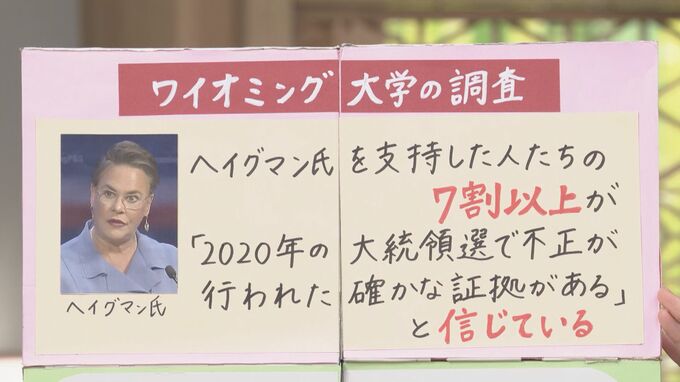 ワイオミング大学の調査
ヘイグマン氏を支持した人たちの
7割以上が
「2020年の大統領選で不正が
行われた確かな証拠がある」
と信じている
ヘイグマン氏